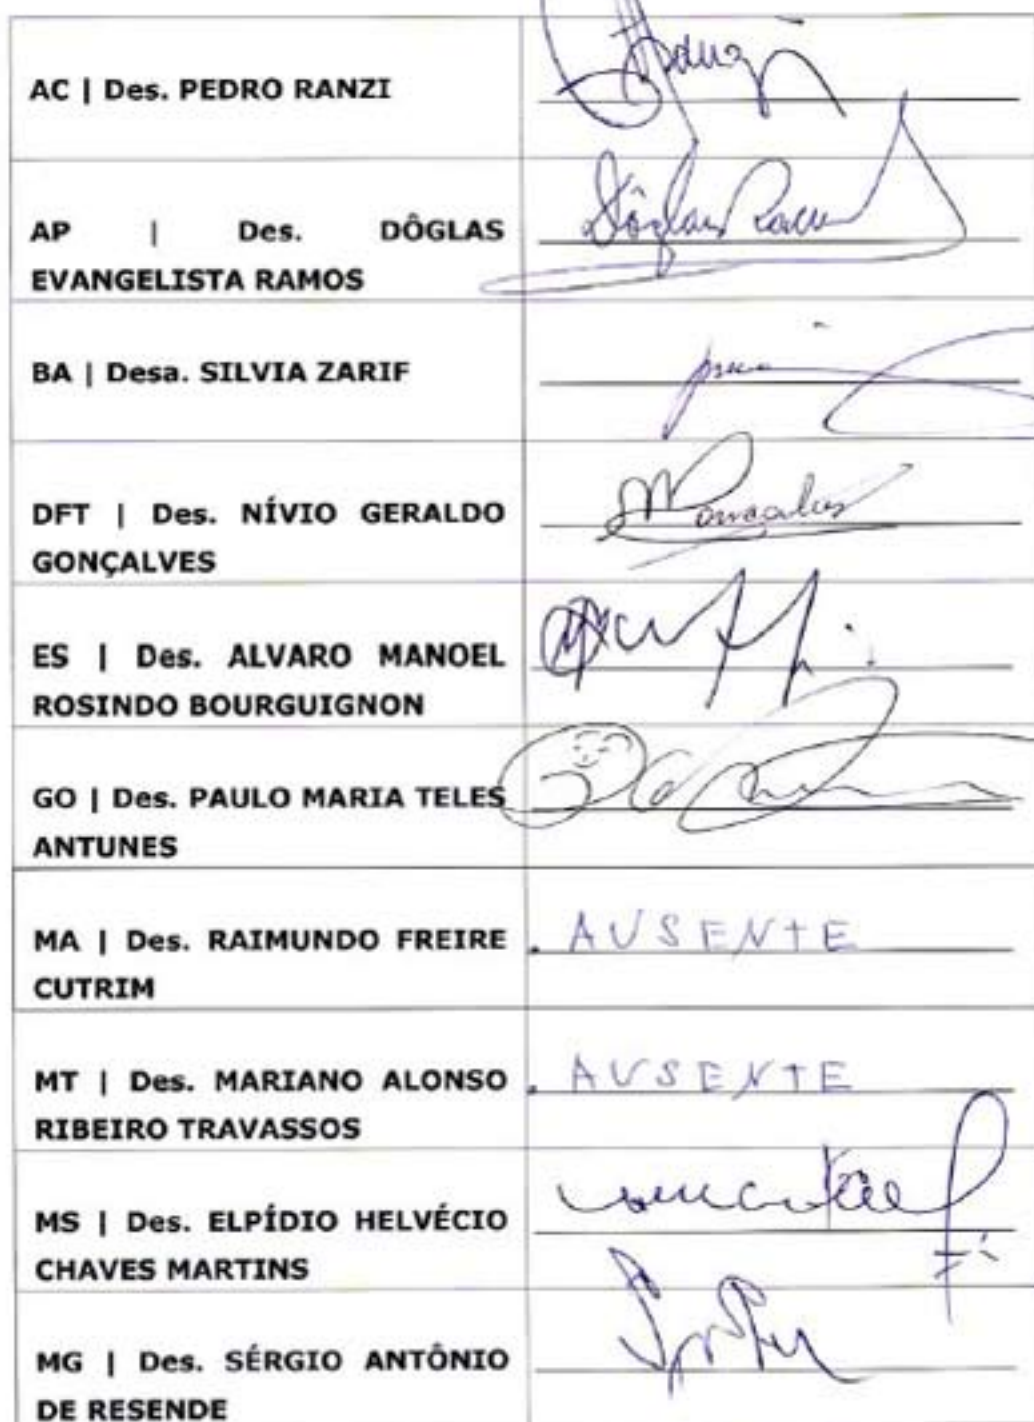 AC | Des. PEDRO RANZI
AP | Des. DÔGLAS
Dôglas Ramos
EVANGELISTA RAMOS
BA | Desa. SILVIA ZARIF
DFT | Des. NÍVIO GERALDO
GONÇALVES
ES | Des. ALVARO MANOEL
ROSINDO BOURGUIGNON
GO | Des. PAULO MARIA TELES
ANTUNES
MA | Des. RAIMUNDO FREIRE
CUTRIM
. AUSENTE
MT | Des. MARIANO ALONSO
RIBEIRO TRAVASSOS
. AUSENTE
MS | Des. ELPÍDIO HELVÉCIO
CHAVES MARTINS
MG | Des. SÉRGIO ANTÔNIO
DE RESENDE